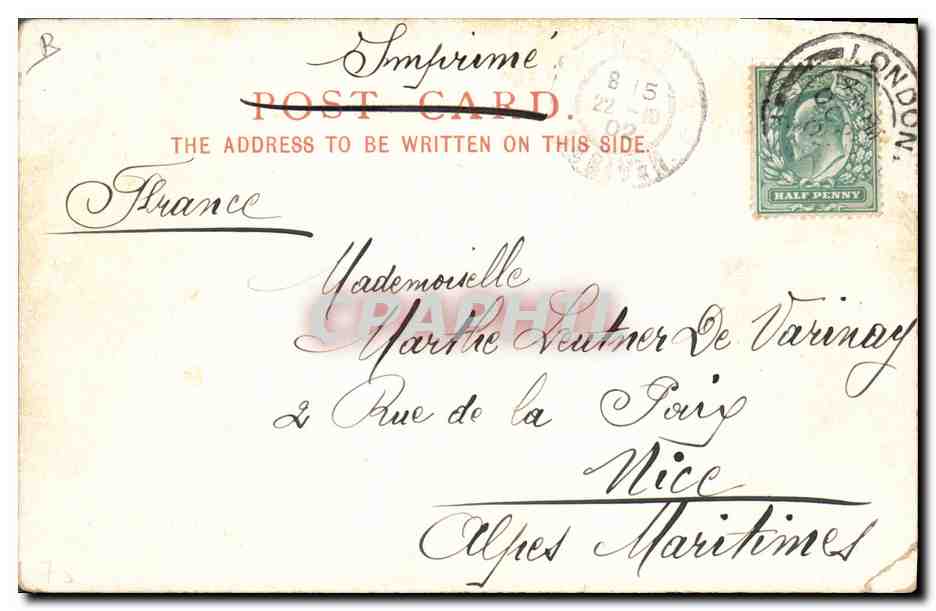 B
Imprimé
POST CARD.
THE ADDRESS TO BE WRITTEN ON THIS SIDE.
8 15
22 - 10
02
LONDON.
HALF PENNY
France
Mademoiselle
CPAPHIL
Marthe Leutner De Varinay
2 Rue de la Paix
Nice
Alpes Maritimes